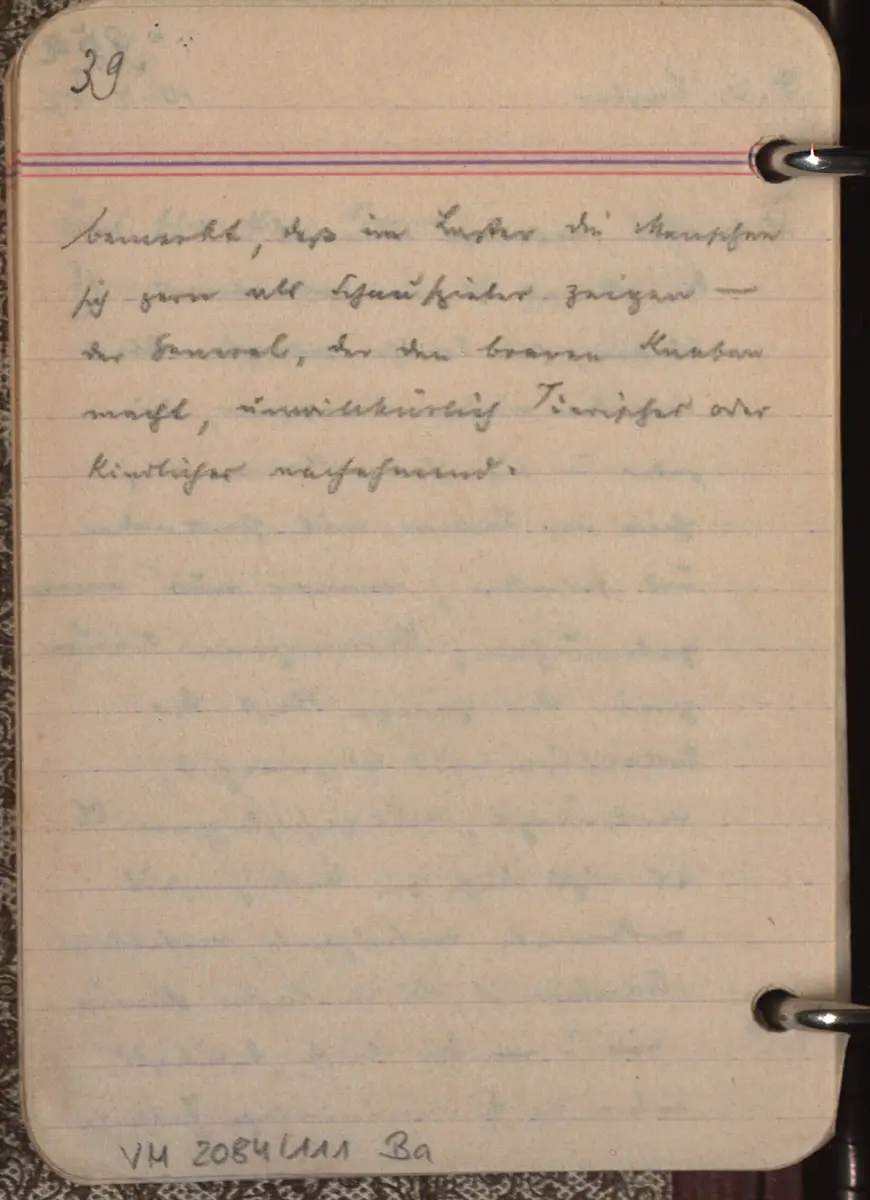 39
bemerkt, daß im Laster die Menschen
sich gern als Schauspieler zeigen —
der General, der den braven Knaben
macht, unwillkürlich Tierisches oder
Kindliches nachahmend.
VM 2084/111 Ba